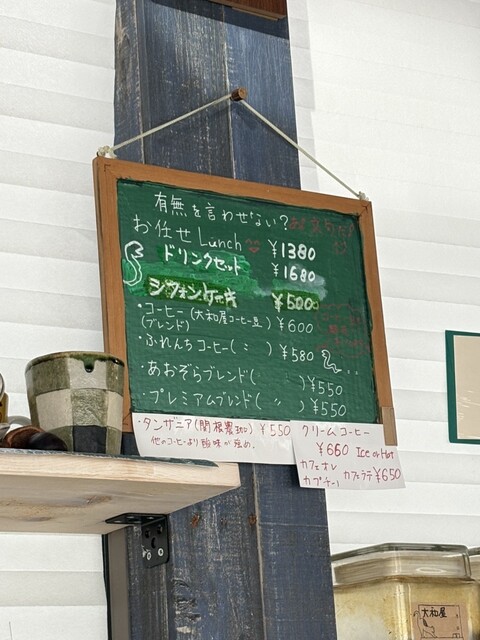 有無を言わせない?
お任せ Lunch ¥1380
ドリンクセット ¥1680
シフォンケーキ ¥500
・コーヒー(大和屋コーヒー豆) ¥600
(ブレンド)
・ふれんちコーヒー( 〃 ) ¥580
・あおぞらブレンド( ) ¥550
・プレミアムブレンド( 〃 ) ¥550
・タンザニア(関根農珈) ¥550
他のコーヒーより酸味が強め。
クリームコーヒー
¥660 Ice or Hot
カフェオレ
カプチーノ カフェラテ ¥650
大和屋